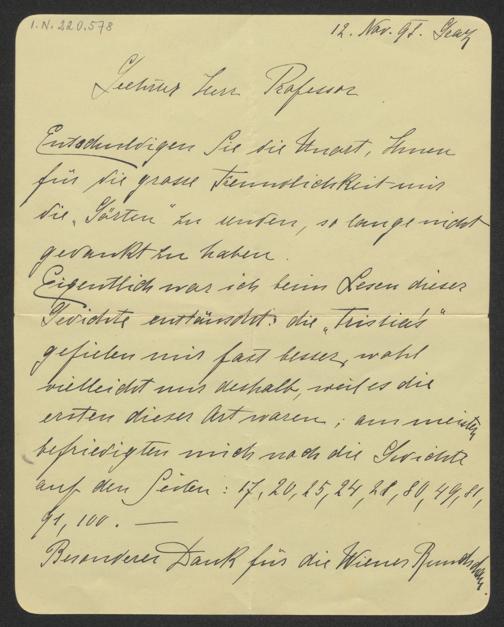 I.N. 220.578
12. Nov. 98. Graz
Geehrter Herr Professor
Entschuldigen Sie die Unart, Ihnen
für die grosse Freundlichkeit mir
die „Gärten“ zu senden, so lange nicht
gedankt zu haben.
Eigentlich war ich beim Lesen dieser
Gedichte enttäuscht: die „Tristia's“
gefielen mir fast besser, wohl
vielleicht nur deshalb, weil es die
ersten dieser Art waren; am meisten
befriedigten mich noch die Gedichte
auf den Seiten: 17, 20, 25, 24, 28, 80, 49, 81,
91, 100. —
Besonderer Dank für die Wiener Rundschau.